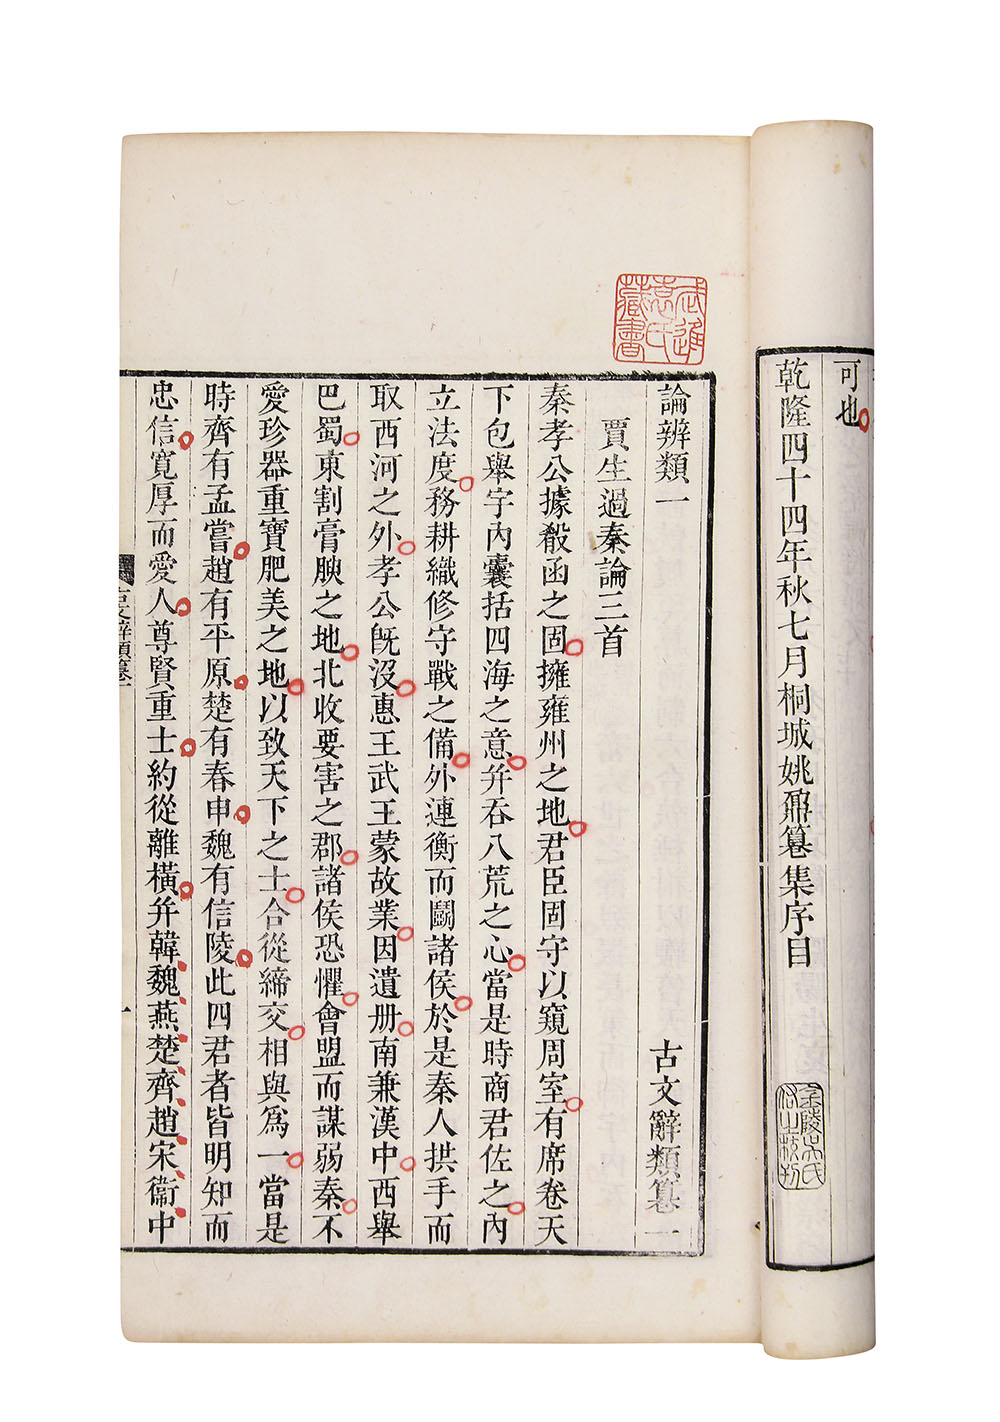 可也
乾隆四十四年秋七月桐城姚鼐篹集序目
金陵吳氏佸之校刊
武進袁氏藏書
論辨類一 古文辭類篹一
賈生過秦論三首
秦孝公據殽函之固擁雍州之地君臣固守以窺周室有席卷天
下包舉宇內囊括四海之意并吞八荒之心當是時商君佐之內
立法度務耕織修守戰之備外連衡而鬭諸侯於是秦人拱手而
取西河之外孝公旣沒惠王武王蒙故業因遺册南兼漢中西舉
巴蜀東割膏腴之地北收要害之郡諸侯恐懼會盟而謀弱秦不
愛珍器重寶肥美之地以致天下之士合從締交相與爲一當是
時齊有孟嘗趙有平原楚有春申魏有信陵此四君者皆明知而
忠信寬厚而愛人尊賢重士約從離橫并韓魏燕楚齊趙宋衞中
古文辭類篹一
一